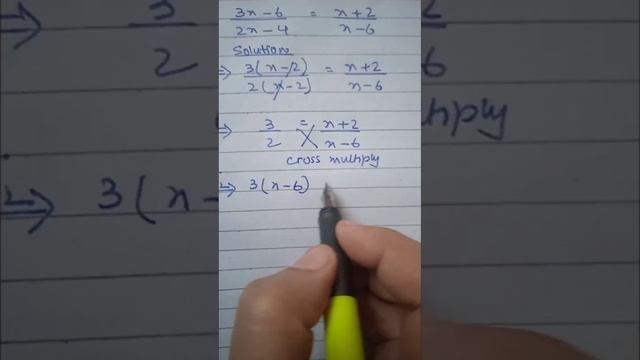 3x-6 / 2x-4 = x+2 / x-6
Solution
⇒ 3(x-2) / 2(x-2) = x+2 / x-6
⇒ 3 / 2 = x+2 / x-6
cross multiply
⇒ 3(x-6)